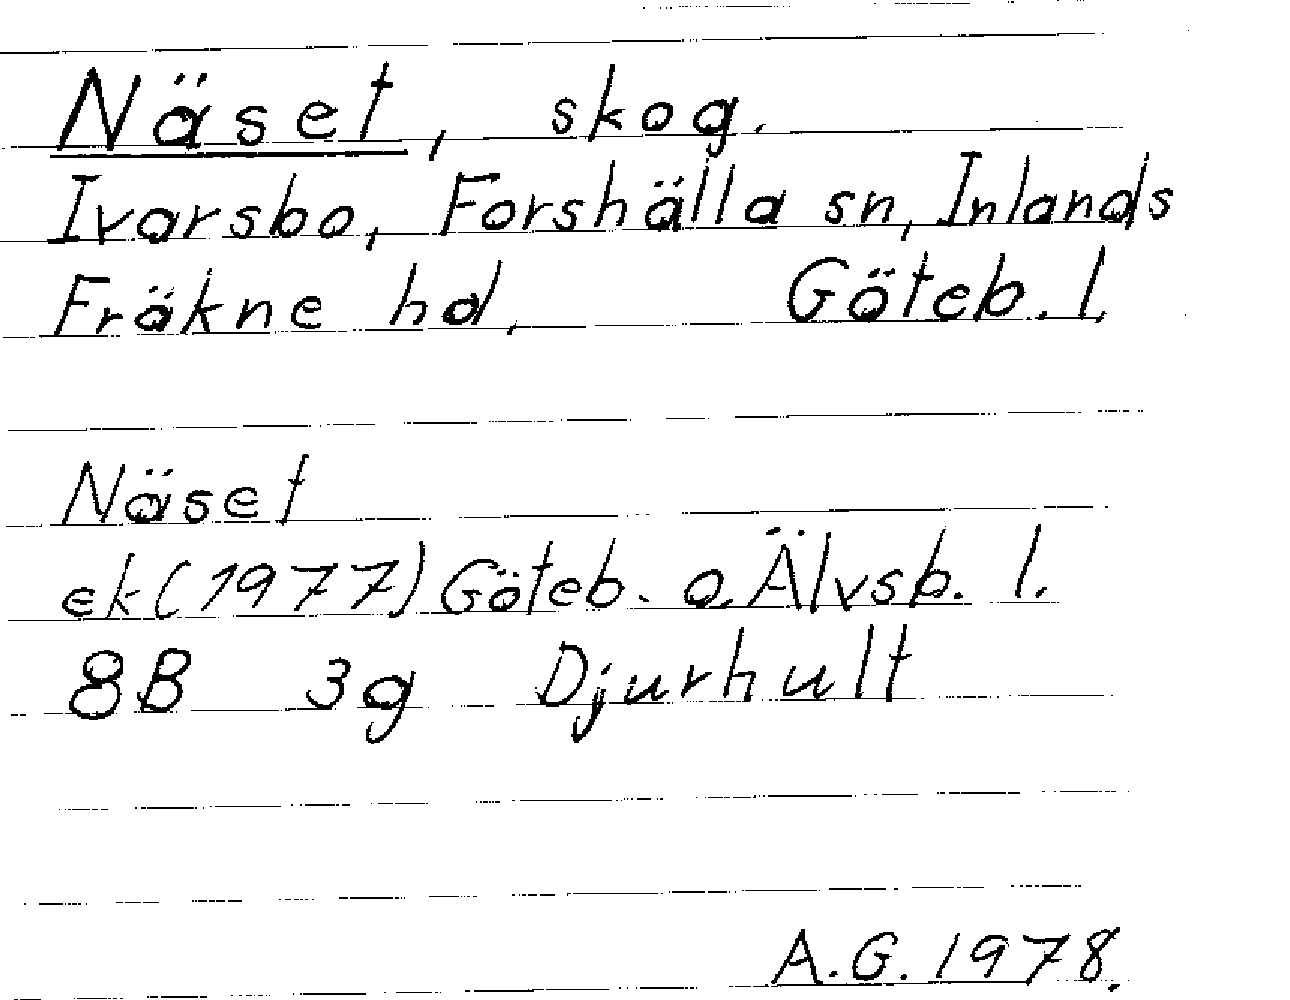 Näset, skog.
Ivarsbo, Forshälla sn, Inlands
Fräkne hd, Göteb. l.
Näset
ek (1977) Göteb. o. Älvsb. l.
8B 3g Djurhult
A.G. 1978.